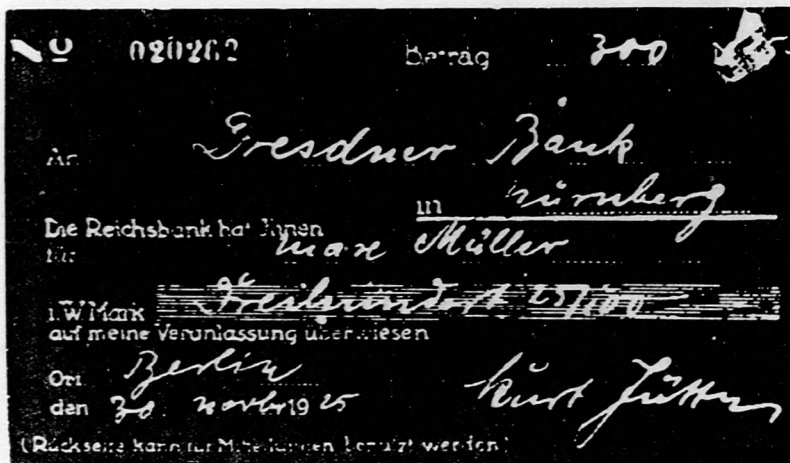 No 020262 Betrag 300 25
An Dresdner Bank
in Nürnberg
Die Reichsbank hat Ihnen
für Max Müller
i.W Mark Dreihundert 25/100
auf meine Veranlassung überwiesen
Ort Berlin
den 30. Novbr 1925 Kurt Jüttner
(Rückseite kann für Mitteilungen benutzt werden)